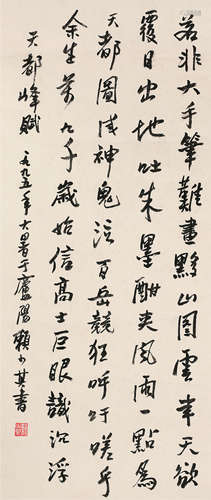 若非大手筆難畫黟山图雲天欲
覆日出地吐朱墨酣夾風雨一點為
天都圖成神鬼泣百岳競狂呼吁嗟乎
余生萬千歲始信高士巨眼識沉浮
天都峰賦 一九九五年大暑于廬陽賴少其書